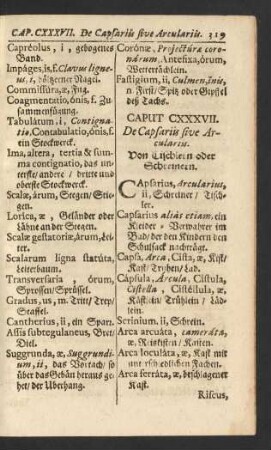 CAP. CXXXVII. De Capsariis sive Arculariis. 319
Capréolus, i, gebogenes
Band.
Impáges, is, f. Clavus ligne-
us, i, höltzerner Nagel.
Commissúra, æ, Fug.
Coagmentatio, ónis, f. Zu-
sammenfügung.
Tabulátum, i, Contignatio,
Contabulatio, ónis, f.
ein Stockwerck.
Ima, altera, tertia & sum-
ma contignatio, das un-
terste/ andere / dritte und
oberste Stockwerck.
Scalæ, árum, Stegen/ Stie-
gen.
Lorica, æ, Geländer oder
Lähne an der Stegen.
Scalæ gestatoriæ, árum, Lei-
ter.
Scalarum ligna statúta,
Leiterbaum.
Transversaria, órum,
Sprossen/ Sprüssel.
Gradus, us, m. Tritt/ Trep/
Staffel.
Cantherius, ii, ein Sparr.
Assis subtegulaneus, Bret/
Diel.
Suggrunda, æ, Suggrundi-
um, ii, das Vortach/ so
über das Gebäu heraus ge-
het/ der Uberhang.
Corónæ, Projectúra coro-
nárum, Antefixa, órum,
Wetterdächlein.
Fastigium, ii, Culmen, ìnis,
n. First/ Spitz oder Gipffel
deß Dachs.
CAPUT CXXXVII.
De Capsariis sive Ar-
culariis.
Von Tischlern oder
Schreinern.
CApsarius, Arcularius,
ii, Schreiner/ Tisch-
ler.
Capsarius aliàs etiam, ein
Kleider-Verwahrer im
Bad/ der den Kindern den
Schulsack nachträgt.
Capsa, Arca, Cista, æ, Kist/
Kast/ Truhen/ Lad.
Cápsula, Arcula, Cistula,
Cistella, Cistéllula, æ,
Kästlein/ Trühlein / Läd-
lein.
Scrinium, ii, Schrein.
Arca arcuáta, camerata,
æ, Reißkisten/ Kasten.
Arca loculáta, æ, Kast mit
unterschiedlichen Fachen.
Arca ferráta, æ, beschlagener
Kast.
Riscus,